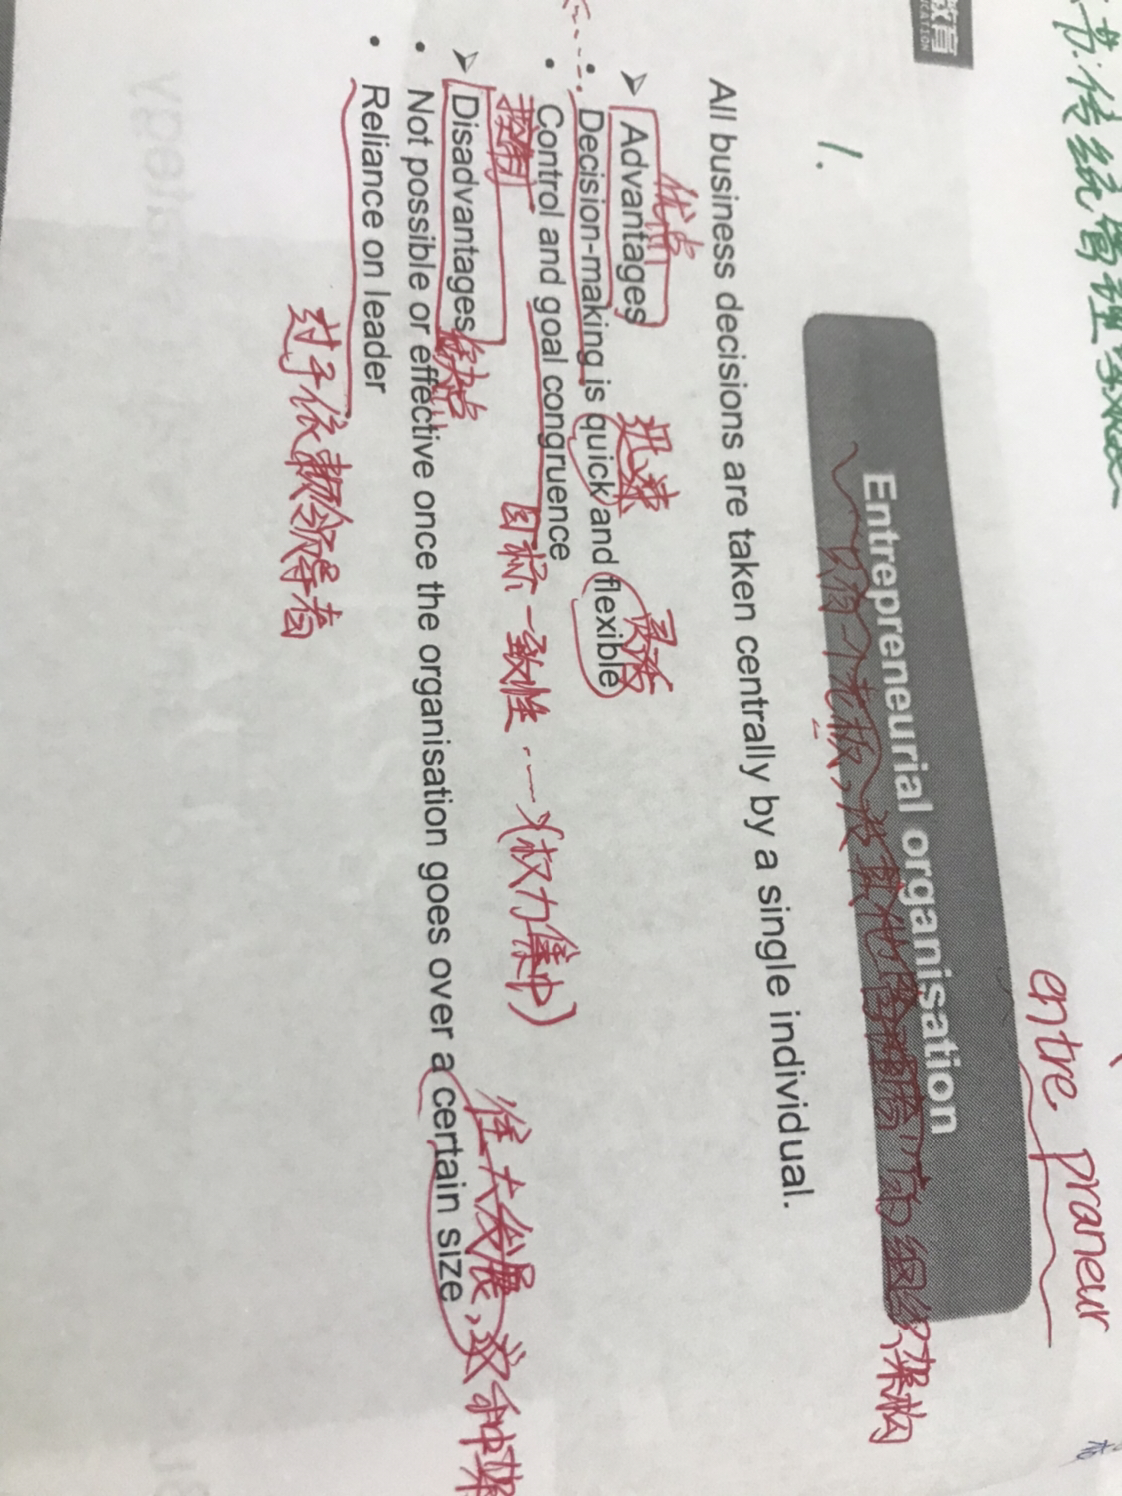 教育
书:传统管理
entre praneur
Entrepreneurial organisation
只有一个老板,
的组织架构
1.
All business decisions are taken centrally by a single individual.
优点
➢ Advantages
迅速 灵活
• Decision-making is quick and flexible
• Control and goal congruence
控制 目标一致性 (权力集中)
➢ Disadvantages 缺点
• Not possible or effective once the organisation goes over a certain size
往大发展,
• Reliance on leader
对于依赖领导者